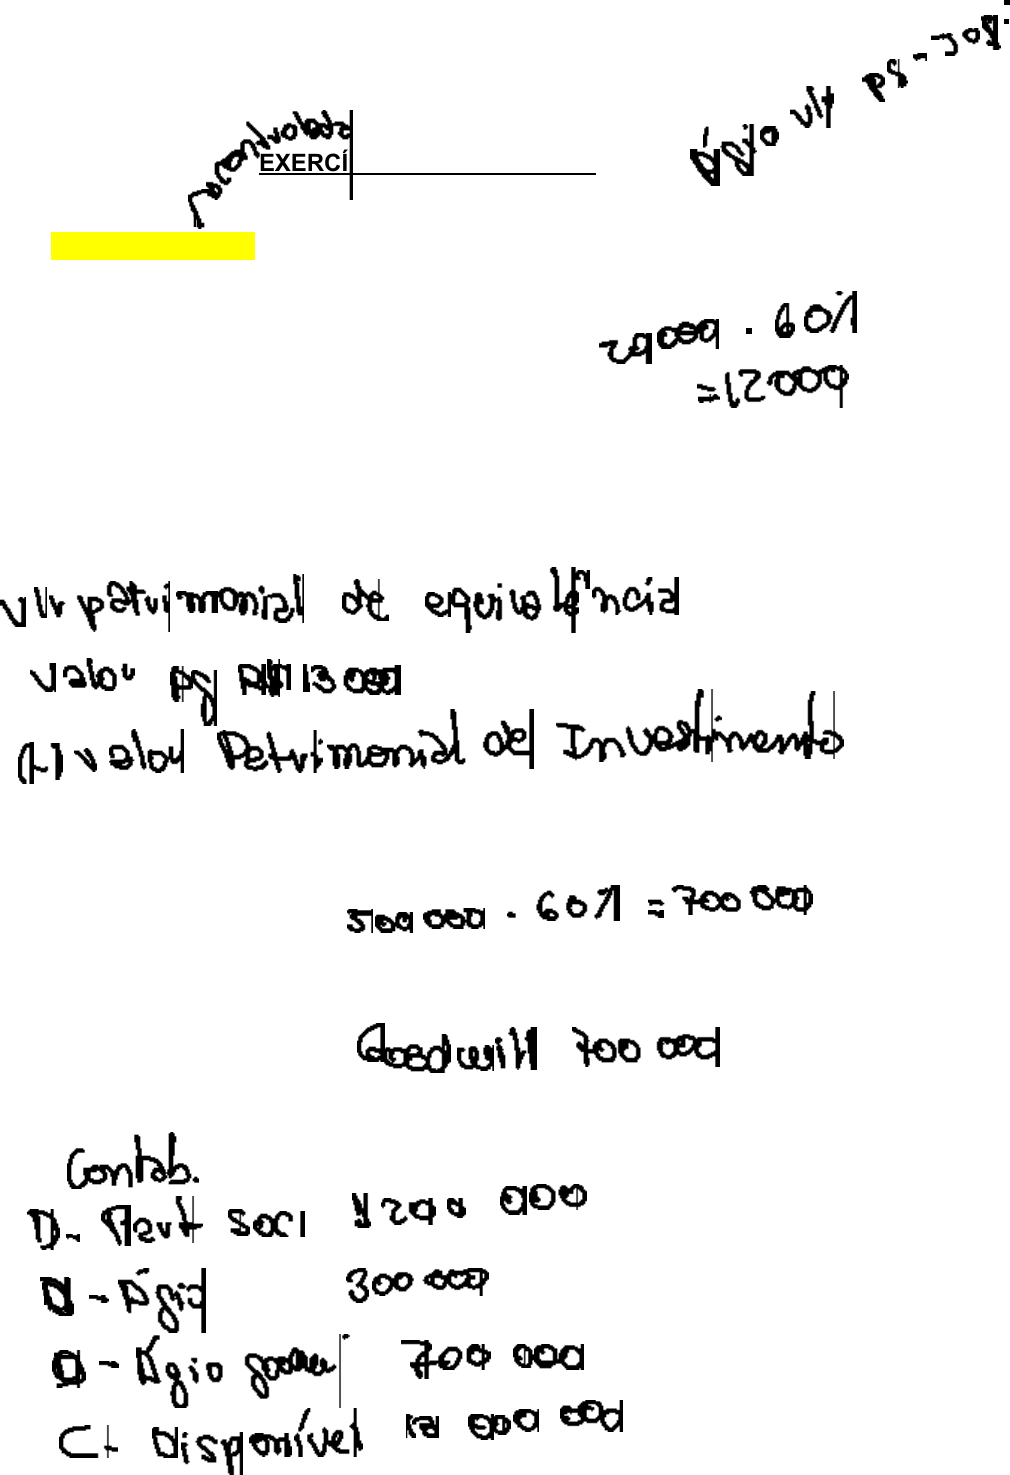 Ágio vlr pg - Jog.
controlada
EXERCÍ
. 60%
= 12000
Vlr patrimonial de equivalência
Valor pg R$ 13 000
(-) valor Patrimonial do Investimento
500 000 . 60% = 700 000
Goodwill 700 000
Contab.
D - Part soci 1 200 000
D - Ágio 300 000
D - Ágio 700 000
C - Disponível 000 000